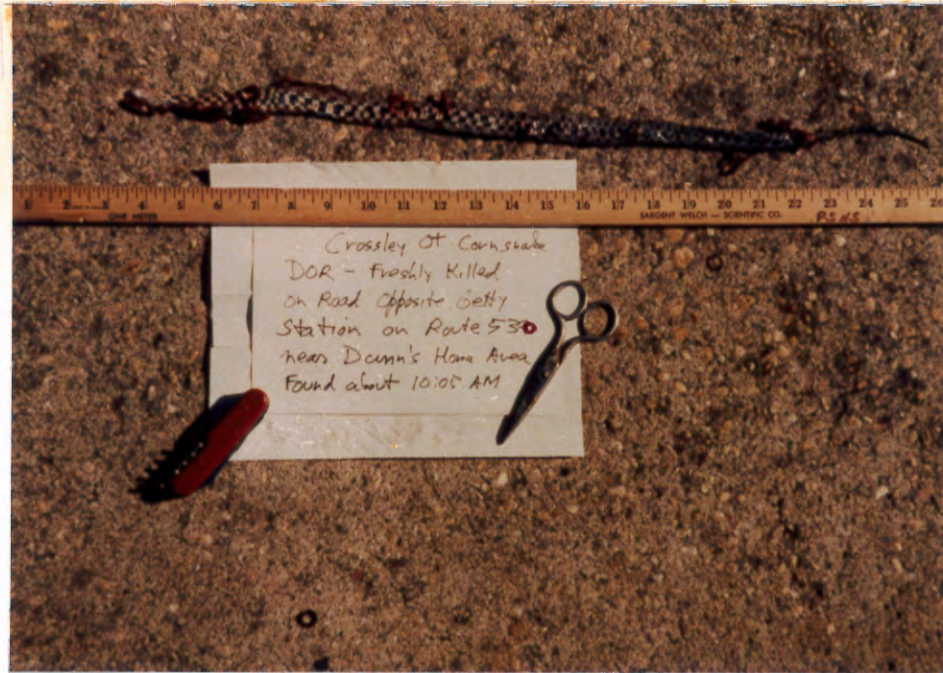 1 2 3 4 5 6 7 8 9 10 11 12 13 14 15 16 17 18 19 20 21 22 23 24 25 26
ONE METER SARGENT WELCH — SCIENTIFIC CO.
Crossley Ot Cornsnake
DOR - Freshly Killed
on Road Opposite Getty
Station on Route 530
near Dunn's Home Area
Found about 10:05 AM